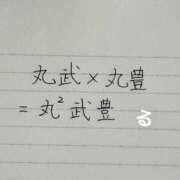 丸武×丸豊
=丸²武豊